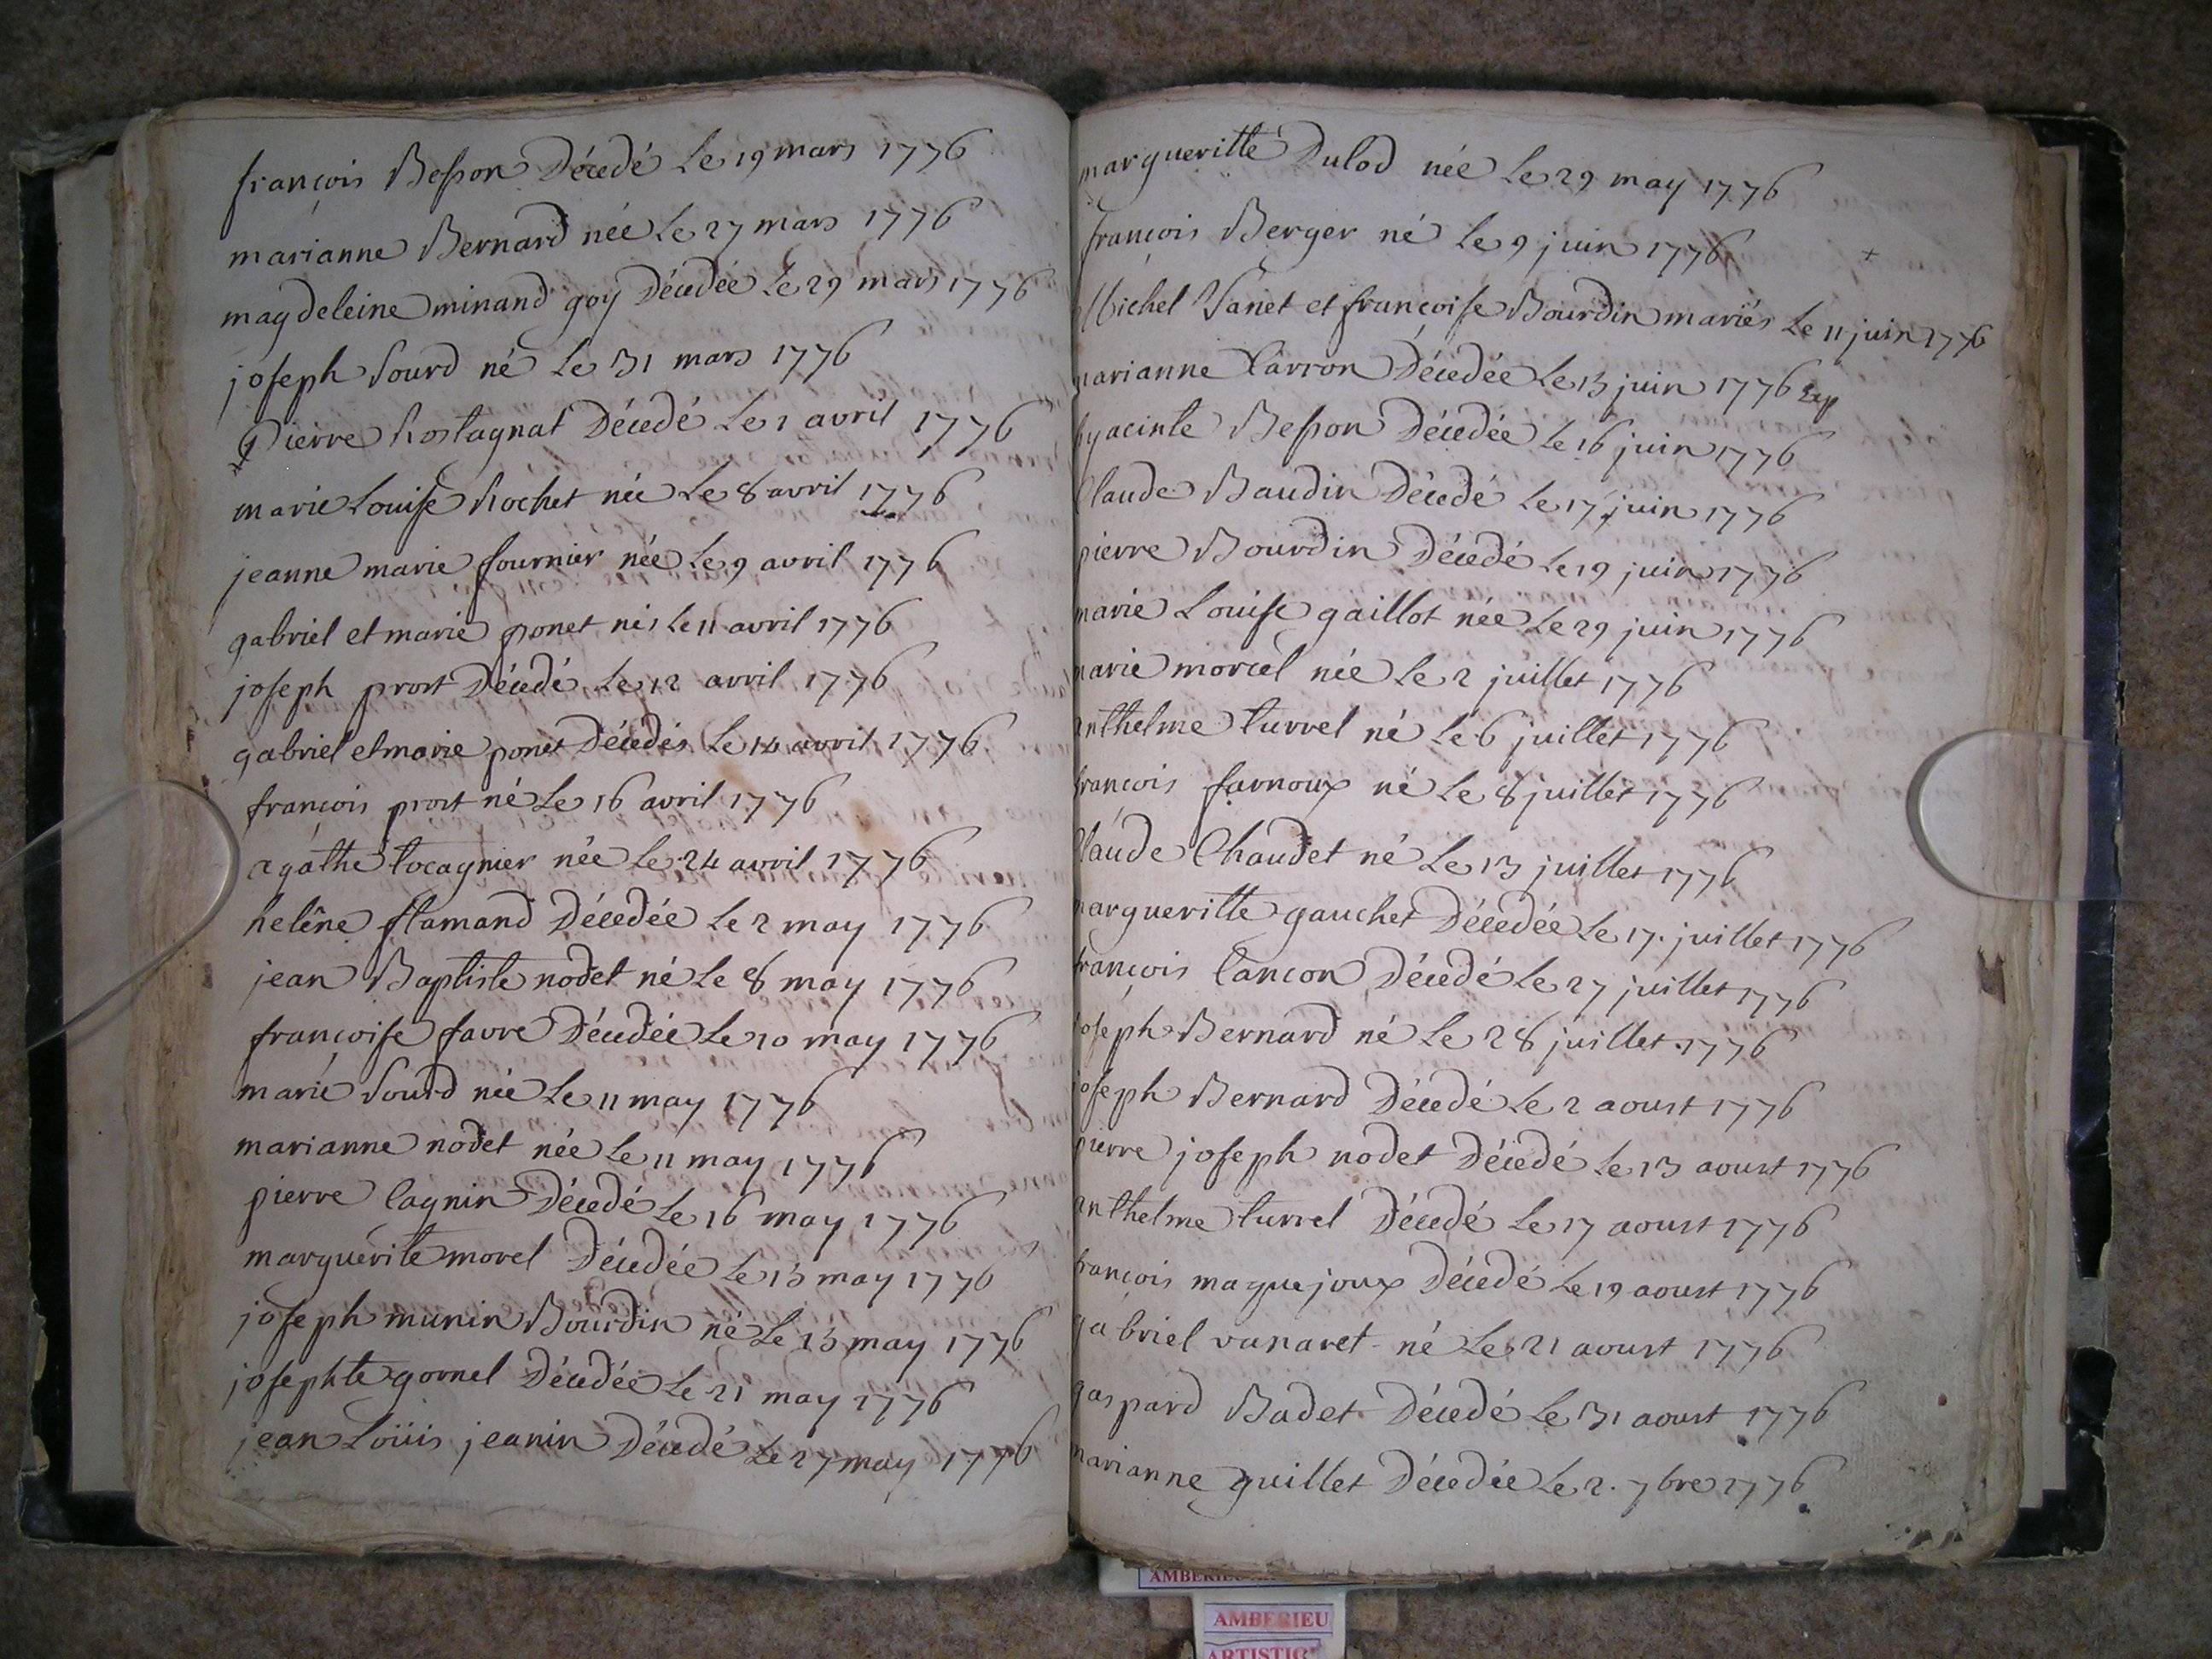 françois Besson Décedé Le 19 mars 1776
marianne Bernard née Le 27 mars 1776
magdeleine minand goy Décedée Le 29 mars 1776
joseph Sourd né Le 31 mars 1776
Pierre Rostagnat Décedé Le 1 avril 1776
marie Louise Rochet née Le 8 avril 1776
jeanne marie fournier née Le 9 avril 1776
gabriel et marie ponet nés Le 11 avril 1776
joseph prost Décedé Le 12 avril 1776
gabriel et marie ponet Décedés Le 14 avril 1776
françois prost né Le 16 avril 1776
agathe tocagnier née Le 24 avril 1776
helêne flamand Décedée Le 2 may 1776
jean Baptiste nodet né Le 8 may 1776
françoise favre Décedée Le 10 may 1776
marie Sourd née Le 11 may 1776
marianne nodet née Le 11 may 1776
pierre Cagnin Décedé Le 16 may 1776
marguerite morel Décedée Le 13 may 1776
joseph munin Bourdin né Le 13 may 1776
josephte gornel Décedée Le 21 may 1776
jean Loüis jeanin Décedé Le 27 may 1776
margueritte Dulod née Le 29 may 1776
françois Berger né Le 9 juin 1776 +
Michel Janet et françoise Bourdin mariés Le 11 juin 1776
marianne Carron Décedée Le 13 juin 1776
hyacinte Besson Décedée Le 16 juin 1776
Claude Baudin Décedé Le 17 juin 1776
pierre Bourdin Décedé Le 19 juin 1776
marie Louise gaillot née Le 29 juin 1776
marie morcel née Le 2 juillet 1776
anthelme turrel né Le 6 juillet 1776
françois farnoux né Le 8 juillet 1776
Claude Chaudet né Le 13 juillet 1776
margueritte gauchet Décedée Le 17. juillet 1776
françois Cancon Décedé Le 27 juillet 1776
joseph Bernard né Le 28 juillet 1776
joseph Bernard Décedé Le 2 aoust 1776
pierre joseph nodet Décedé Le 13 aoust 1776
anthelme turrel Décedé Le 17 aoust 1776
françois maquejoux Décedé Le 19 aoust 1776
gabriel vanaret né Le 21 aoust 1776
gaspard Badet Décedé Le 31 aoust 1776
marianne guillet Décedée Le 2. 7bre 1776
AMBERIEU
AMBERIEU
ARTISTIC